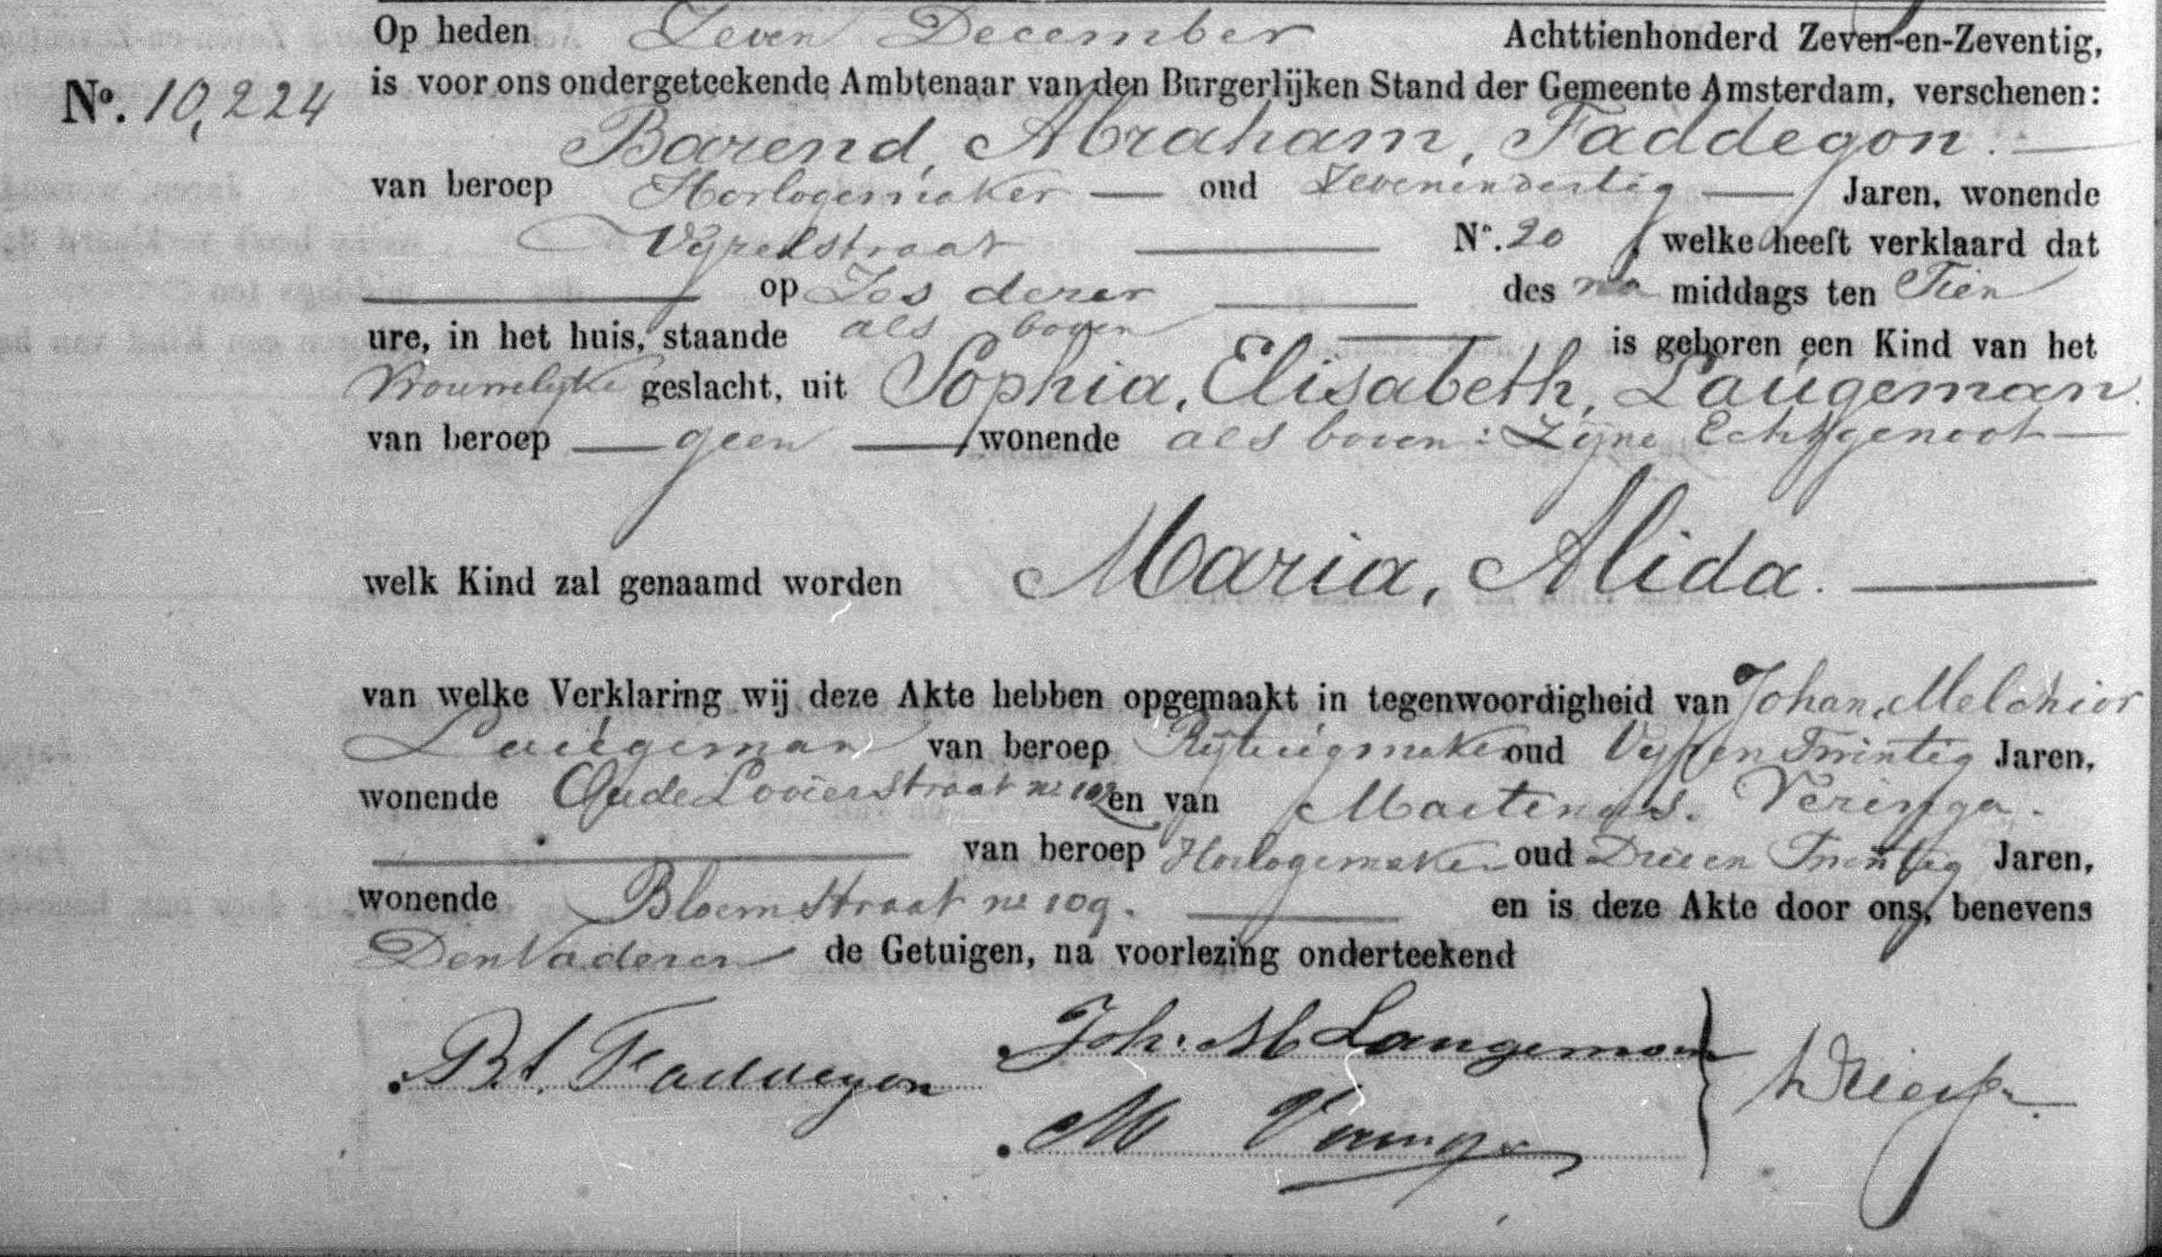 Op heden Zeven December Achttienhonderd Zeven-en-Zeventig,
No. 10,224
is voor ons ondergeteekende Ambtenaar van den Burgerlijken Stand der Gemeente Amsterdam, verschenen:
Barend, Abraham, Faddegon. —
van beroep Horlogemaker — oud Zevenendertig — Jaren, wonende
Vijzelstraat — No. 20 welke heeft verklaard dat
— op Zes dezer — des na middags ten Tien
ure, in het huis, staande als boven — is geboren een Kind van het
Vrouwelijke geslacht, uit Sophia, Elisabeth, Laugeman.
van beroep — geen — wonende als boven: Zijne Echtgenoot —
welk Kind zal genaamd worden Maria, Alida. —
van welke Verklaring wij deze Akte hebben opgemaakt in tegenwoordigheid van Johan, Melchior
Laugeman van beroep Rijtuigmaker oud Vijf en Twintig Jaren,
wonende Oude Looiersstraat no en van Martinus. Veringa.
— van beroep Horlogemaker oud Drie en Twintig Jaren,
wonende Bloemstraat no 109. — en is deze Akte door ons, benevens
Den Vader en de Getuigen, na voorlezing onderteekend
B.A. Faddegon
Joh. M Laugeman
M Veringa